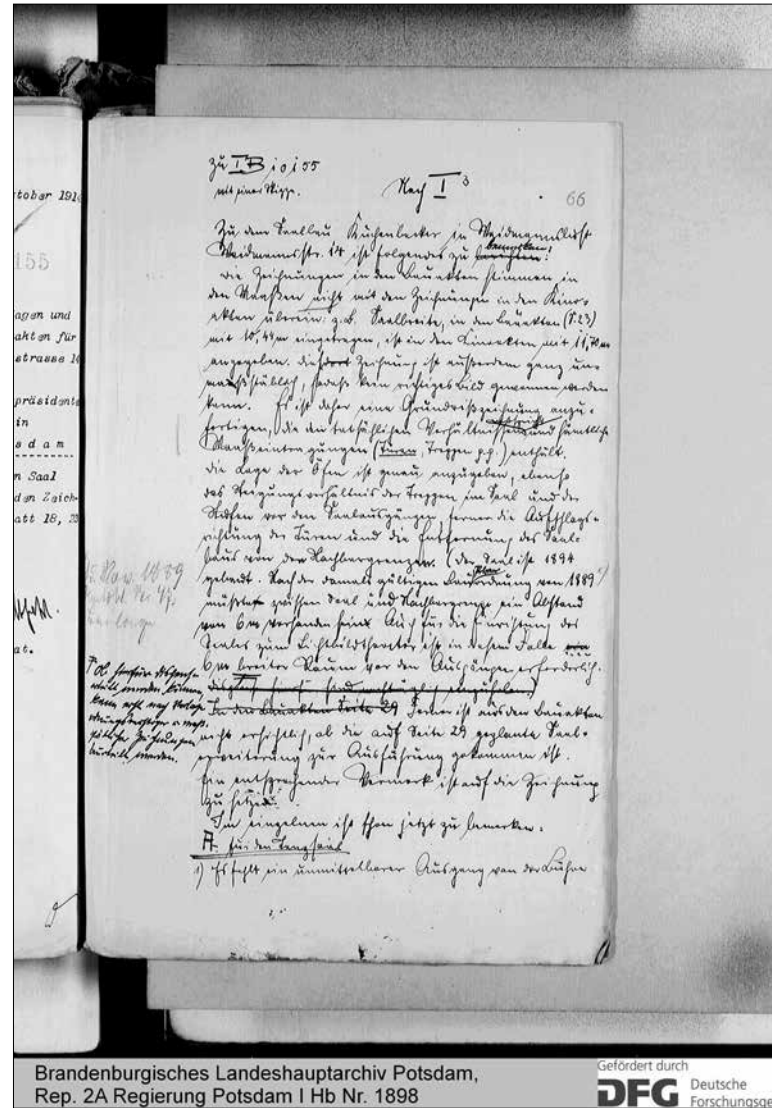 ktober 191
155
agen und
akten für
strasse 14
präsidente
in
s d a m
n Saal
den Zeich-
att 18, 23
at.
zu I B 10155
mit einer Mappe.
Nach I 3
66
Zu dem Saalbau Kuchenbecker in Weidmannslust
Weidmannstr. 14 ist folgendes zu bemerken:
Die Zeichnungen in den Bauakten stimmen in
den Maaßen nicht mit den Zeichnungen in den Kino-
akten überein: z.B. Saalbreite, in den Bauakten (S. 23)
mit 10,44 m eingetragen, ist in den Kinoakten mit 11,70 m
angegeben. Zeichnung ist außerdem ganz un-
maaßstäblich, sodaß kein richtiges Bild gewonnen werden
kann. Es ist daher eine Grundrißzeichnung anzu-
fertigen, die den tatsächlichen Verhältnissen und sämtliche
Maaßeintragungen (Türen, Treppen p.p.) enthält.
Die Lage der Öfen ist genau anzugeben, ebenso
das Steigungsverhältnis der Treppen im Saal und der
Stufen vor den Saalausgängen, ferner die Aufschlags-
richtung der Türen und die Entfernung des Saal-
baus von den Nachbargrenzen. (Der Saal ist 1894
gebaut. Nach der damals gültigen Bauordnung von 1889
mußte zwischen Saal und Nachbargrenze ein Abstand
von 6 m vorhanden sein. Auch für die Einrichtung des
Saales zum Lichtbildtheater ist in diesem Falle ein
6 m breiter Raum vor den Ausgängen erforderlich.
In den Bauakten Seite 29 Ferner ist aus den Bauakten
nicht ersichtlich, ob die auf Seite 29 geplante Saal-
erweiterung zur Ausführung gekommen ist.
Ein entsprechender Vermerk ist auf die Zeichnung
zu setzen.
Im einzelnen ist schon jetzt zu bemerken:
A. für den Tanzsaal
1) Es fehlt ein unmittelbarer Ausgang von der Bühne
Ob hierfür
werden können,
kann erst nach Vorlage
werden.
Brandenburgisches Landeshauptarchiv Potsdam,
Rep. 2A Regierung Potsdam I Hb Nr. 1898
Gefördert durch
DFG Deutsche
Forschungsge